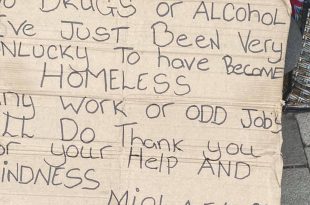 DRUGS or ALCOHOL
I've JUST Been Very
UNLUCKY To have Become
HOMELESS
Any WORK or ODD Jobs
Will Do Thank you
For your Help AND
KINDNESS